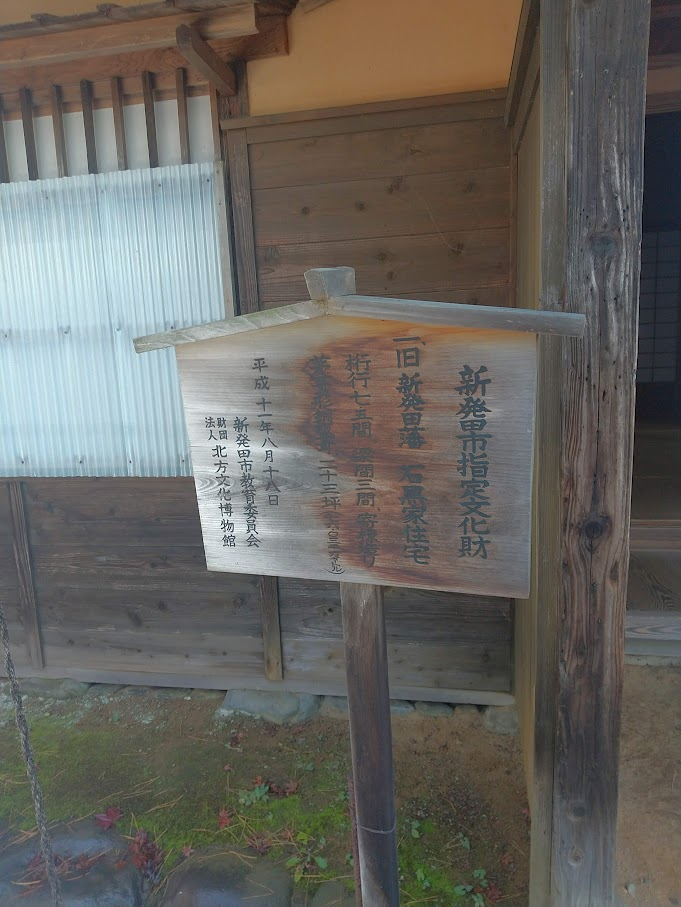 新発田市指定文化財
一、旧新発田藩 石黒家住宅
桁行七五間 梁間三間 寄棟造り
茅葺 二十三坪
平成十一年八月十八日
新発田市教育委員会
財団法人 北方文化博物館